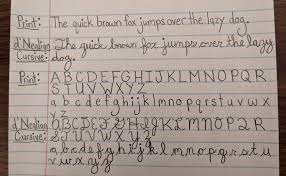 Print: The quick brown fox jumps over the lazy dog.
d'Nealian The quick brown fox jumps over the lazy
Cursive: dog.
Print: A B C D E F G H I J K L M N O P Q R
S T U V W X Y Z
a b c d e f g h i j k l m n o p q r s t u v w x
y z
d'Nealian A B C D E F G H I J K L M N O P Q R
Cursive: S T U V W X Y Z
a b c d e f g h i j k l m n o p q r s t u
v w x y z